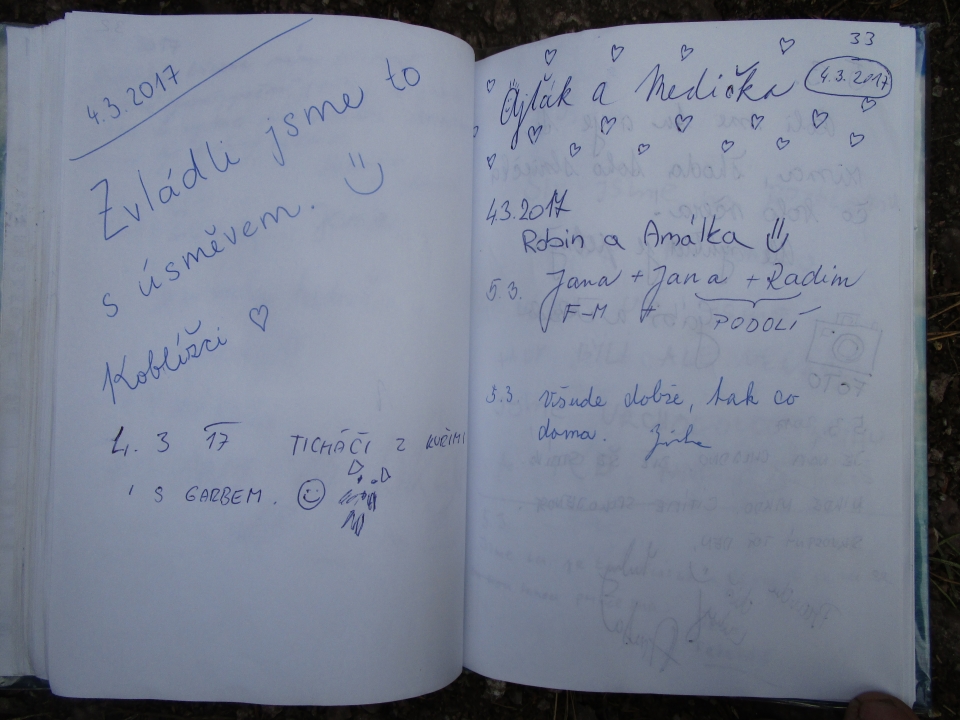 4.3.2017
Zvládli jsme to
s úsměvem.
Koblížci
4. 3 17 TICHÁČI Z KUŘIMI
S GARBEM.
33
Ajťák a Medička
4.3.2017
4.3.2017
Robin a Amálka
5.3. Jana + Jana + Radim
F-M + PODOLÍ
5.3. všude dobře, tak co
doma.